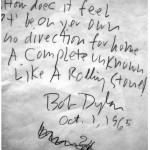 How does it feel
T' be on your own
no direction for home
A Complete unknown
Like A Rolling Stone
Bob Dylan
Oct. 1, 1965